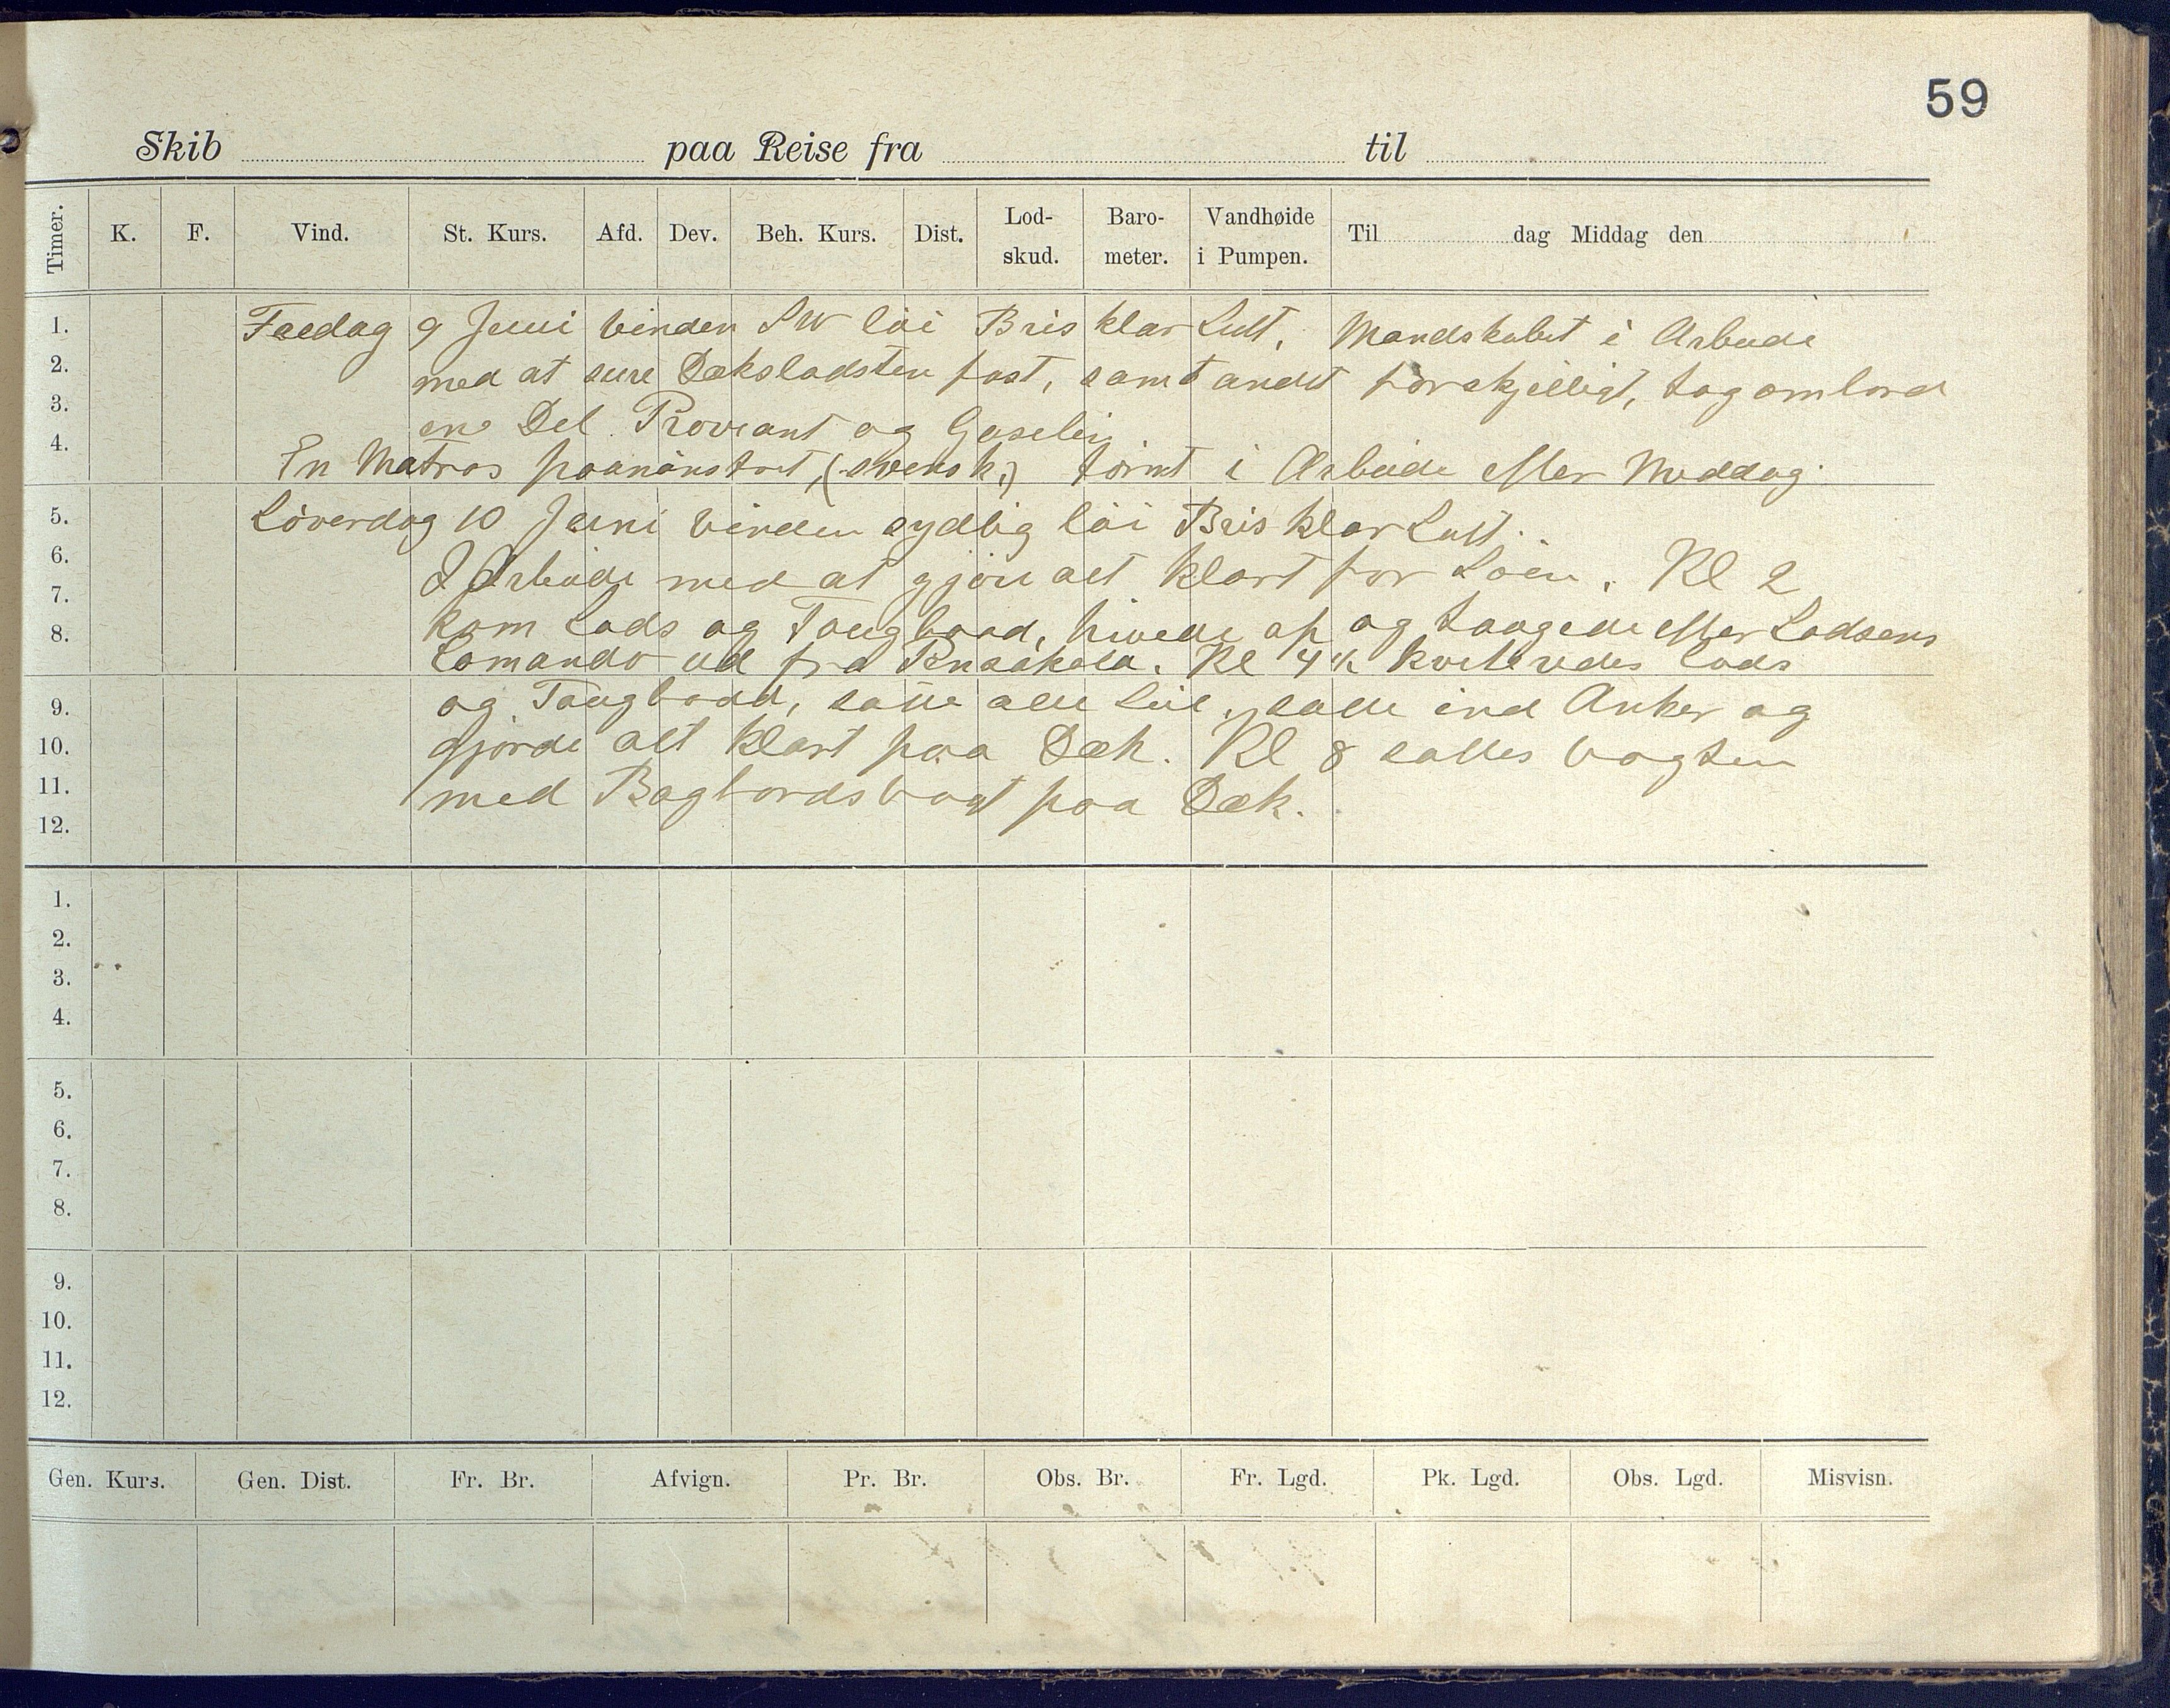 59
Skib paa Reise fra til
Timer. K. F. Vind. St. Kurs. Afd. Dev. Beh. Kurs. Dist. Lod-skud. Baro-meter. Vandhøide i Pumpen. Til dag Middag den
1. Fredag 9 Juni Vinden SW löi Bris klar Luft, Mandskabet i Arbeide
2. med at sure Dæksladsten fast, samt andet forskjelligt, tog ombord
3. en Del Proviant og Gaselin
4. En Matros paamönstret, (svensk,) törnt i Arbeide efter Meddag.
5. Löverdag 10 Juni Vinden sydlig löi Bris klar Luft.
6. I Arbeide med at gjöre alt klart for Söen. Kl 2
7. kom Lods og Taugbaad, hivede op og taugede efter Lodsens
8. Comando ud fra Pensakola. Kl 4 kvitteredes Lods
9. og Taugbaad, satte alle Seil, satte ind Anker og
10. gjorde alt klart paa Dæk. Kl 8 sattes Vagten
11. med Bagbordsvagt paa Dæk.
12.
1.
2.
3.
4.
5.
6.
7.
8.
9.
10.
11.
12.
Gen. Kurs. Gen. Dist. Fr. Br. Afvign. Pr. Br. Obs. Br. Fr. Lgd. Pk. Lgd. Obs. Lgd. Misvisn.